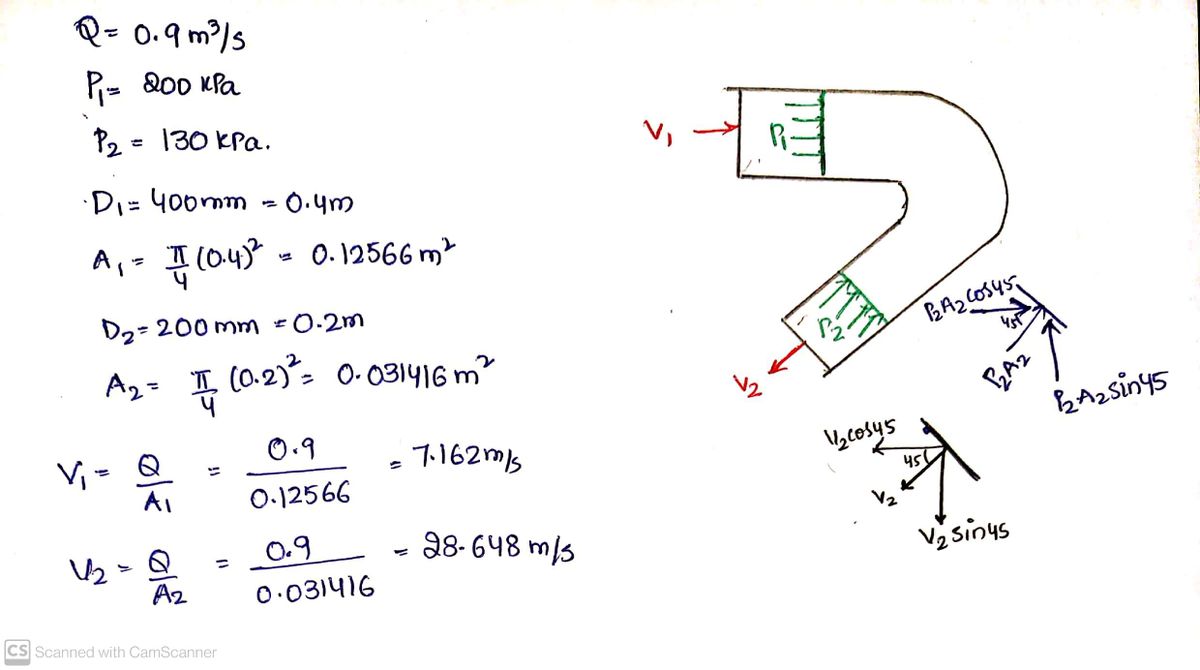 Q = 0.9 m³/s
P₁ = 200 KPa
P₂ = 130 KPa.
D₁ = 400mm = 0.4m
A₁ = π/4 (0.4)² = 0.12566 m²
D₂ = 200 mm = 0.2m
A₂ = π/4 (0.2)² = 0.031416 m²
V₁ = Q/A₁ = 0.9/0.12566 = 7.162m/s
V₂ = Q/A₂ = 0.9/0.031416 = 28.648 m/s
V₁
P₁
P₂
V₂
P₂A₂ cos45
45
P₂A₂
P₂A₂ sin45
V₂cos45
45
V₂
V₂ sin45
CS Scanned with CamScanner